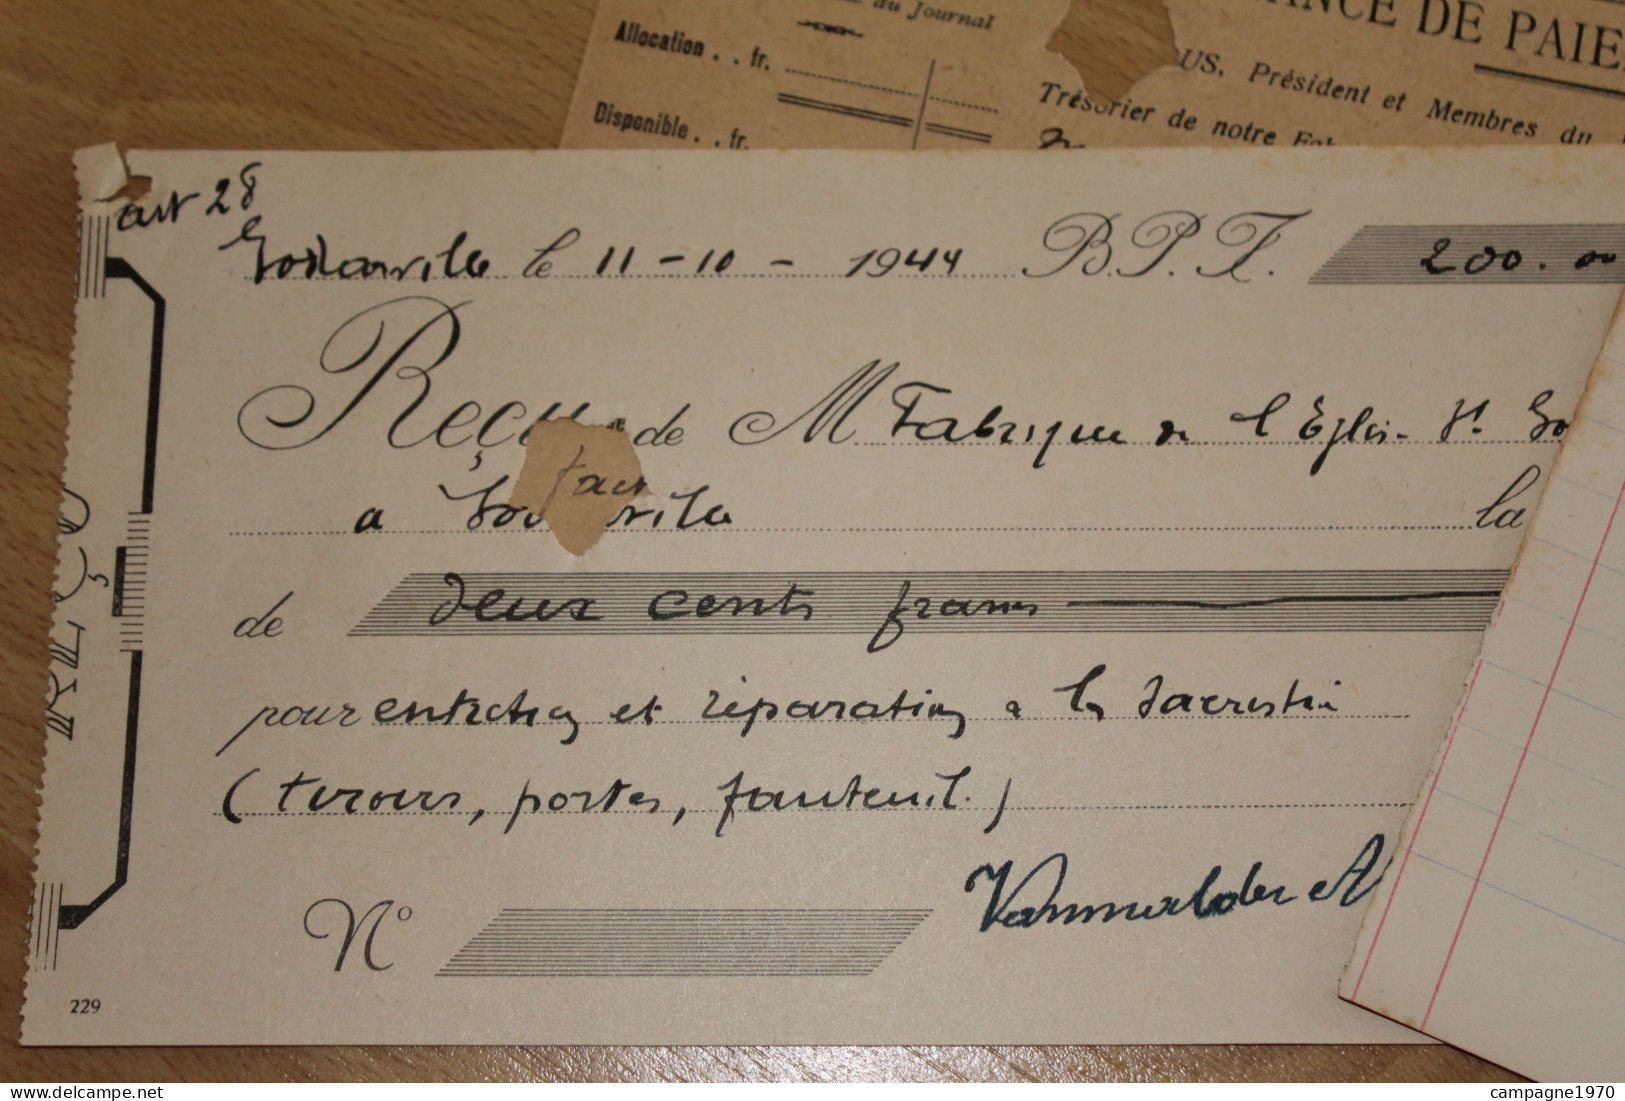 du Journal
Allocation . . fr.
Disponible . . fr.
ANCE DE PAIE
OUS, Président et Membres du
Trésorier de notre Fab
art 28
Goidarville le 11 - 10 - 1944 B.P.F. 200.00
Reçu de M Fabrique de l'Eglise St
a
la
de deux cents francs
pour entretien et réparation a la sacristie
(tiroirs, portes, fauteuil.)
Nº
229
REÇU
campagne1970